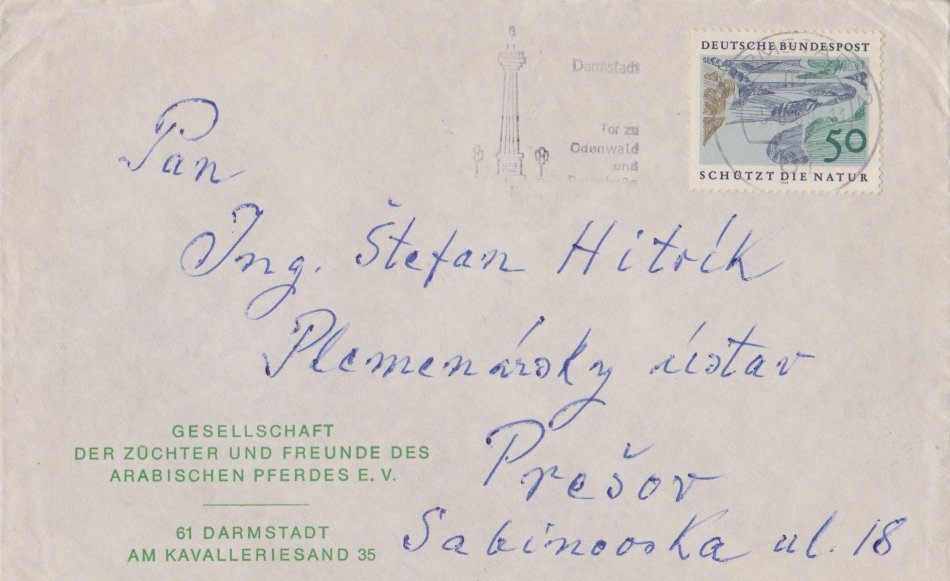 Darmstadt
Tor zu
Odenwald
und
DEUTSCHE BUNDESPOST
50
SCHÜTZT DIE NATUR
Pan
Ing. Štefan Hitrík
Plemenársky ústav
Prešov
Sabinovska ul. 18
GESELLSCHAFT
DER ZÜCHTER UND FREUNDE DES
ARABISCHEN PFERDES E. V.
61 DARMSTADT
AM KAVALLERIESAND 35